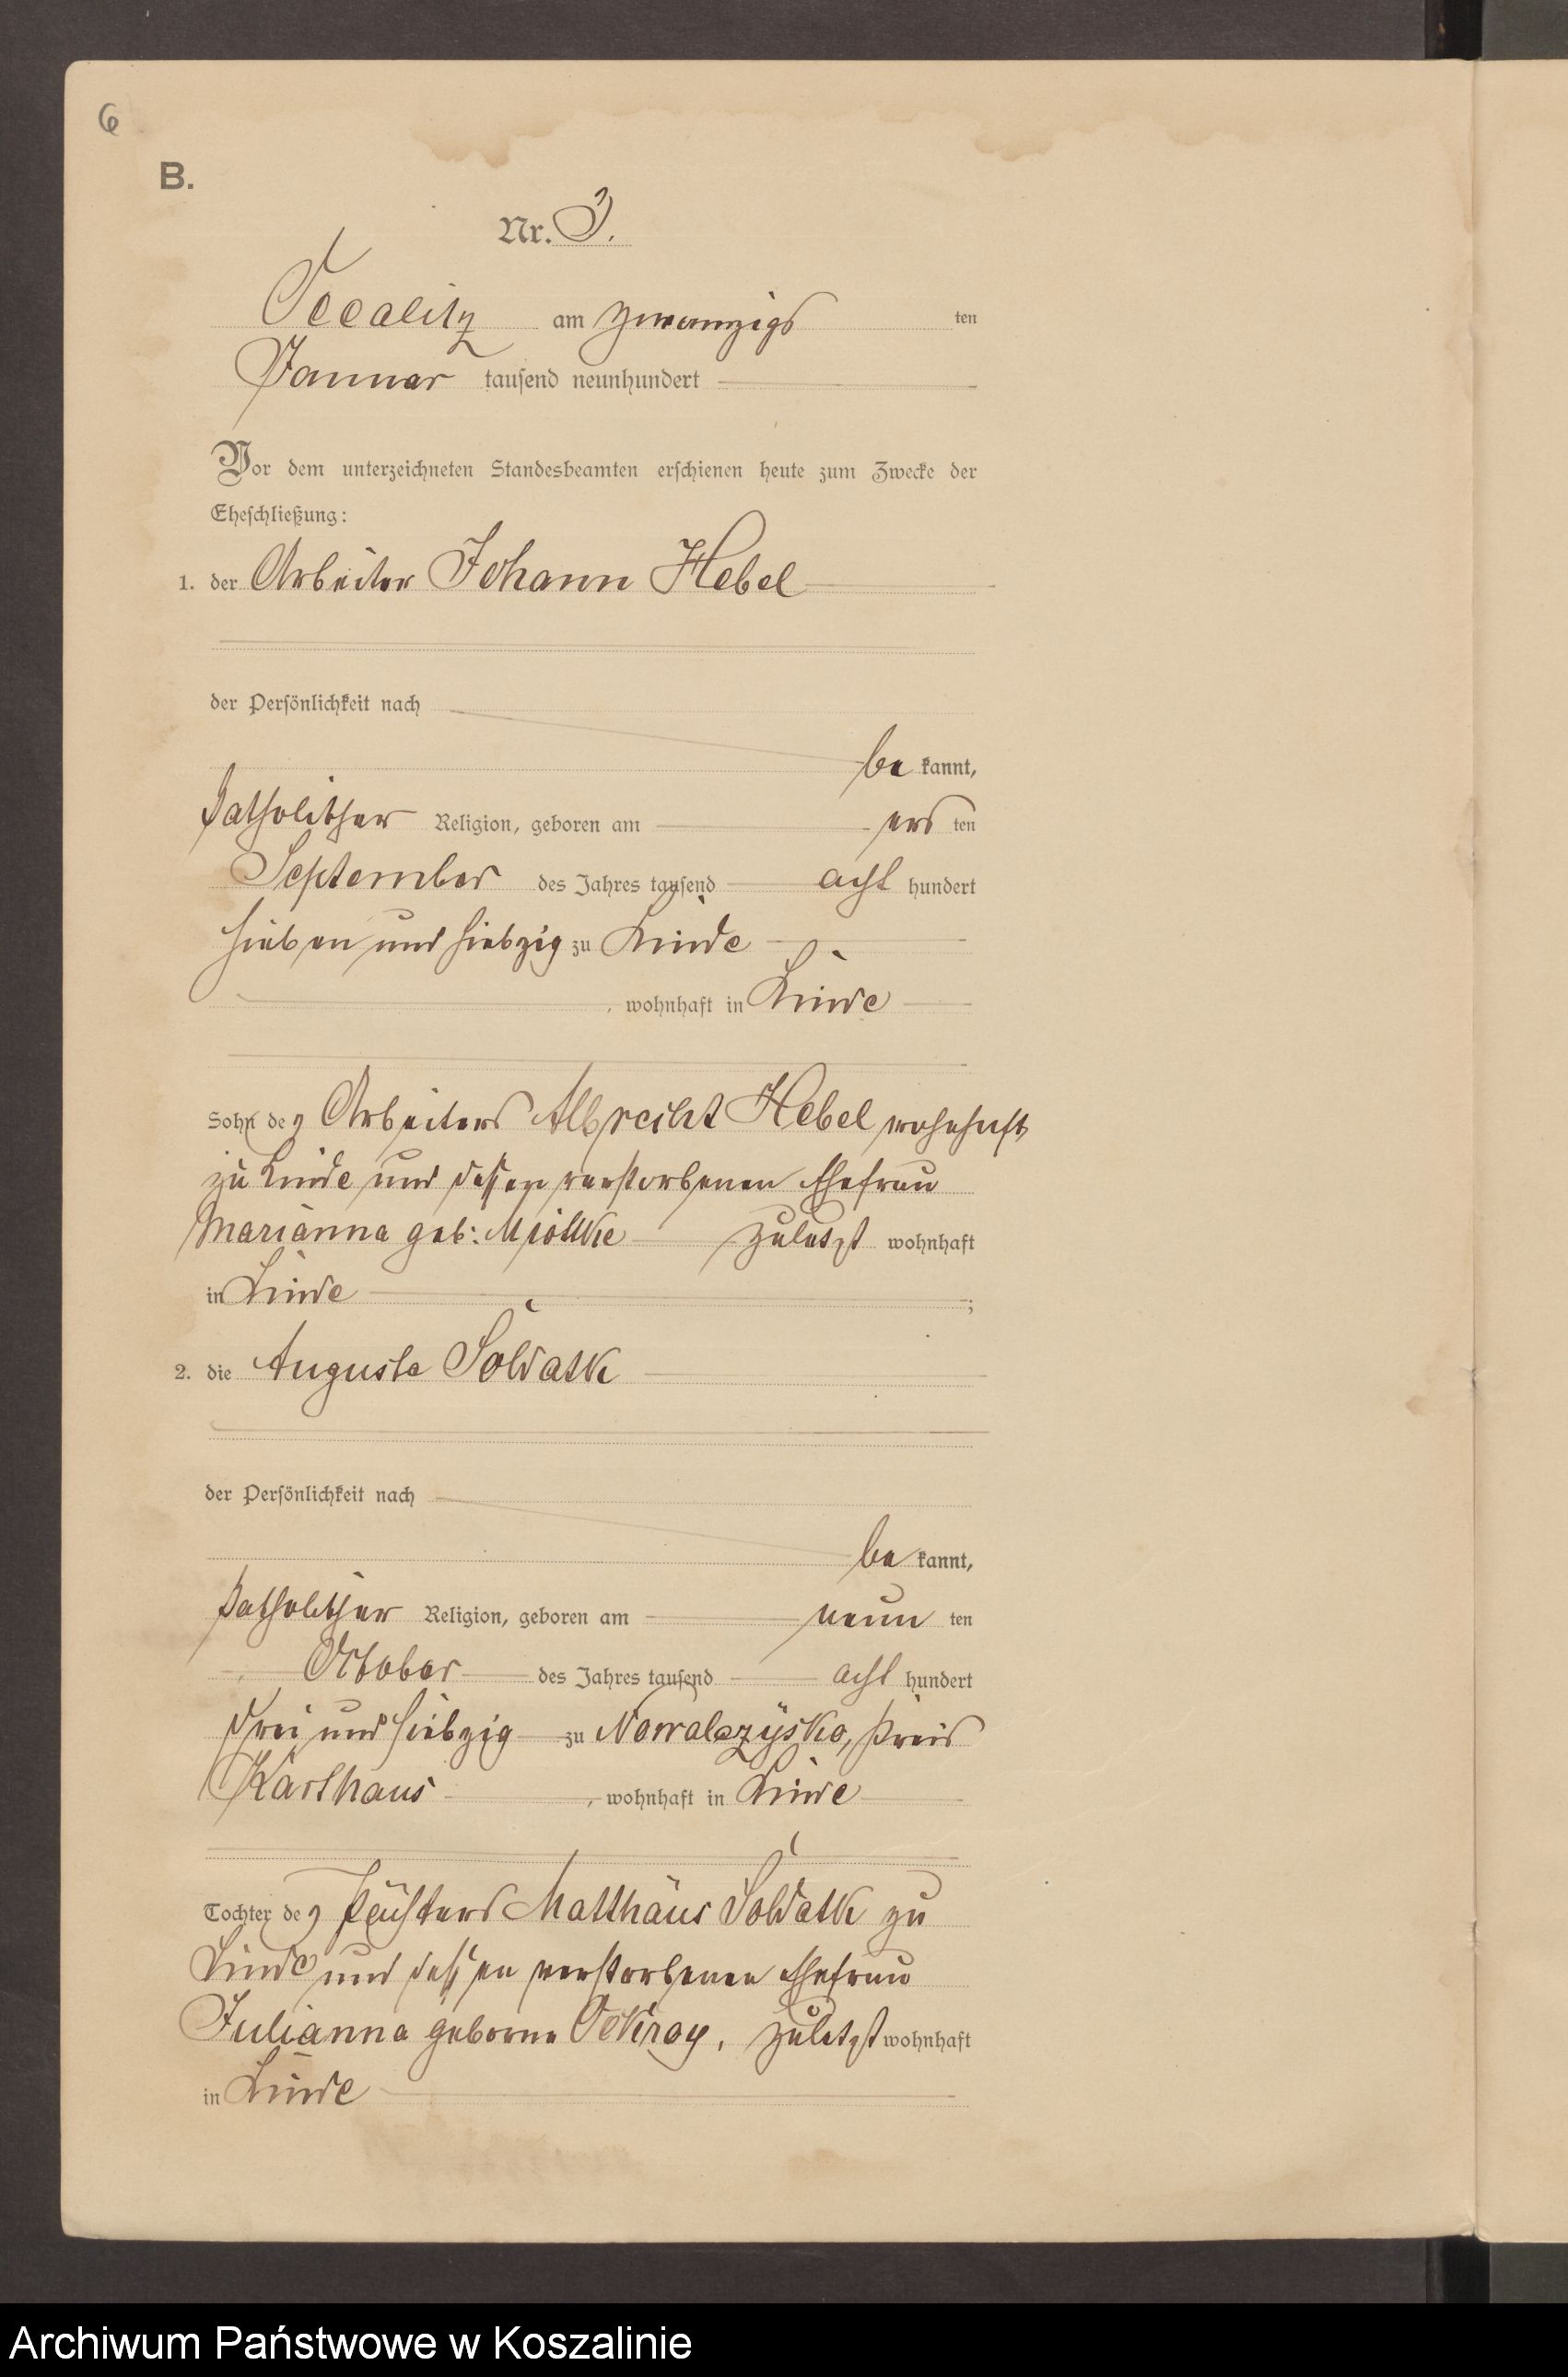 6
B.
Nr. 3.
Occalitz am zwanzigs ten
Januar tausend neunhundert
Vor dem unterzeichneten Standesbeamten erschienen heute zum Zwecke der
Eheschließung:
1. der Arbeiter Johann Hebel
der Persönlichkeit nach
be kannt,
katholischer Religion, geboren am ers ten
September des Jahres tausend acht hundert
sieben und siebzig zu Linde
, wohnhaft in Linde
Sohn des Arbeiters Albrecht Hebel wohnhaft
zu Linde und dessen verstorbenen Ehefrau
Marianna geb: Miottke zuletzt wohnhaft
in Linde ;
2. die Auguste Soldatk
der Persönlichkeit nach
be kannt,
katholischer Religion, geboren am neun ten
October des Jahres tausend acht hundert
drei und siebzig zu Kreis
Karthaus , wohnhaft in Linde
Tochter des Pächters Matthäus Soldatk zu
Linde und dessen verstorbenen Ehefrau
Julianna geborne zuletzt wohnhaft
in Linde
Archiwum Państwowe w Koszalinie